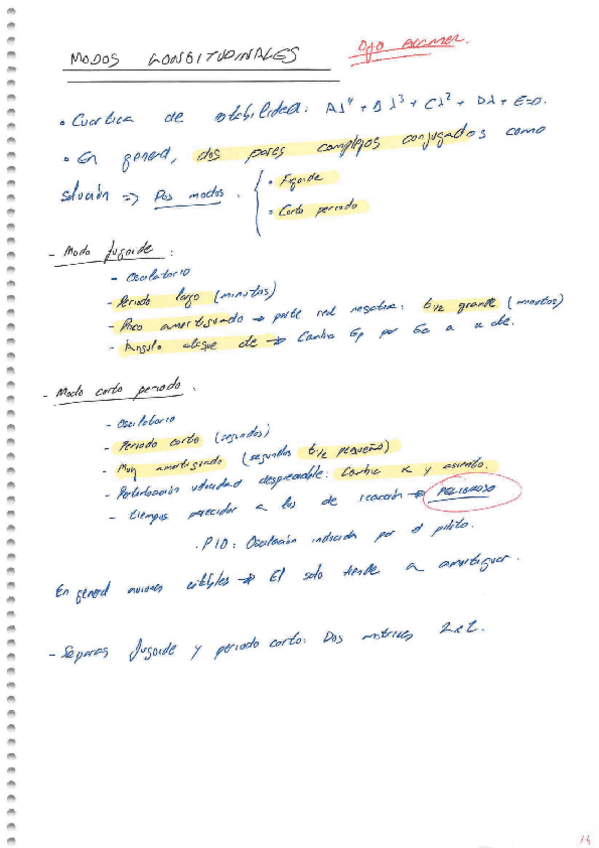 MODOS LONGITUDINALES Ojo examen.
• Cuártica de estabilidad: Aλ⁴ + Bλ³ + Cλ² + Dλ + E=0.
• En general, dos pares complejos conjugados como
solución => Dos modos. { • Fugoide
• Corto periodo
- Modo fugoide:
- Oscilatorio
- Periodo largo (minutos)
- Poco amortiguado → parte real negativa: t1/2 grande (minutos)
- Ángulo ataque cte → Cambia Ep por Ec a α cte.
- Modo corto periodo:
- Oscilatorio
- Periodo corto (segundos)
- Muy amortiguado (segundos t1/2 pequeño)
- Perturbación velocidad despreciable: Cambia α y asiento.
- tiempos parecidos a los de reacción → PELIGROSO
. PIO: Oscilación inducida por el piloto.
En general aviones estables → El solo tiende a amortiguar.
- Separas fugoide y periodo corto: Dos matrices 2x2.